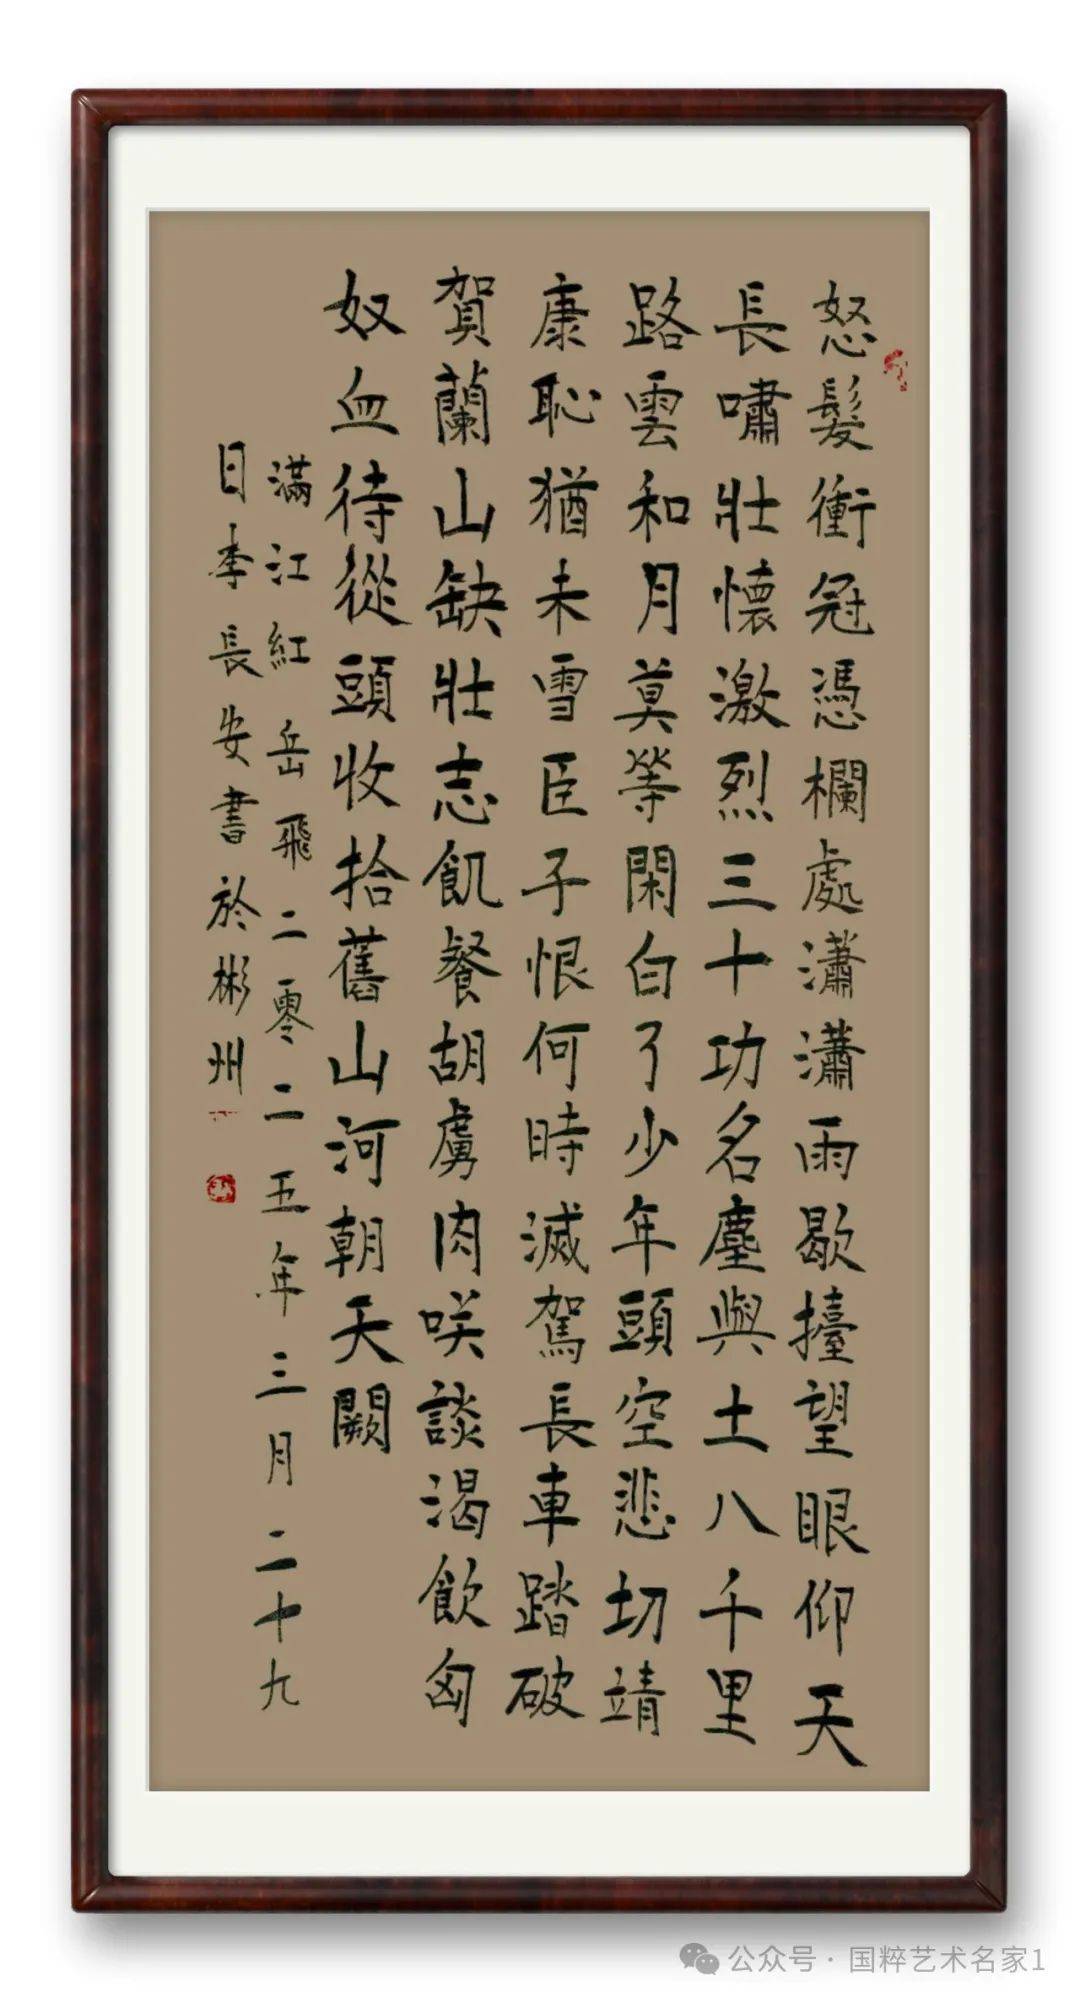 怒髮衝冠憑欄處瀟瀟雨歇擡望眼仰天
長嘯壯懷激烈三十功名塵與土八千里
路雲和月莫等閑白了少年頭空悲切靖
康恥猶未雪臣子恨何時滅駕長車踏破
賀蘭山缺壯志飢餐胡虜肉咲談渴飲匈
奴血待從頭收拾舊山河朝天闕
滿江紅岳飛二零二五年三月二十九
日李長安書於彬州
公众号·国粹艺术名家1